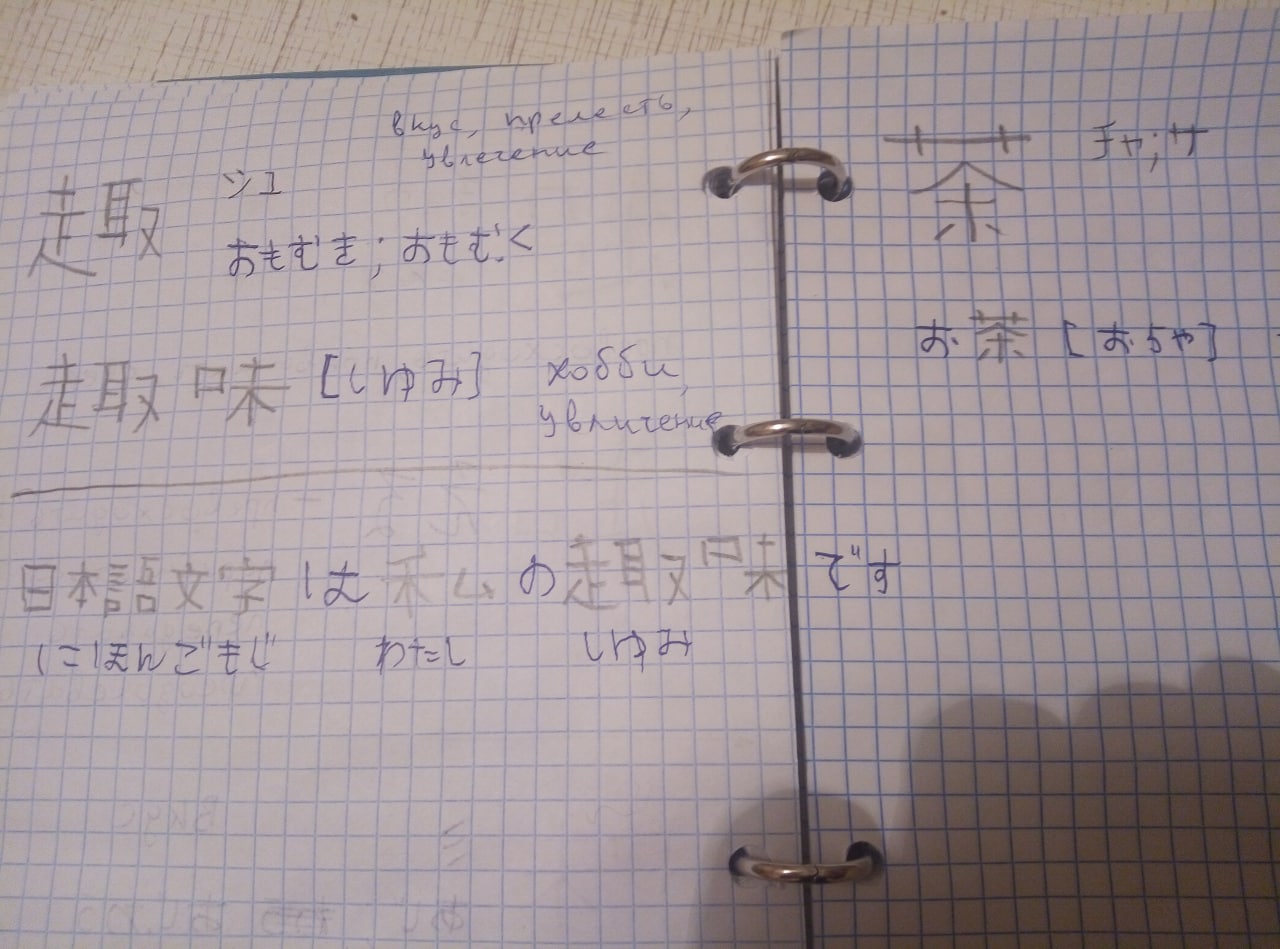 вкус, прелесть,
увлечение
趣 シュ
おもむき; おもむく
趣味 [しゅみ] хобби,
увличение
日本語文字は私の趣味です
にほんごもじ わたし しゅみ
茶 チャ; サ
お茶 [おちゃ]